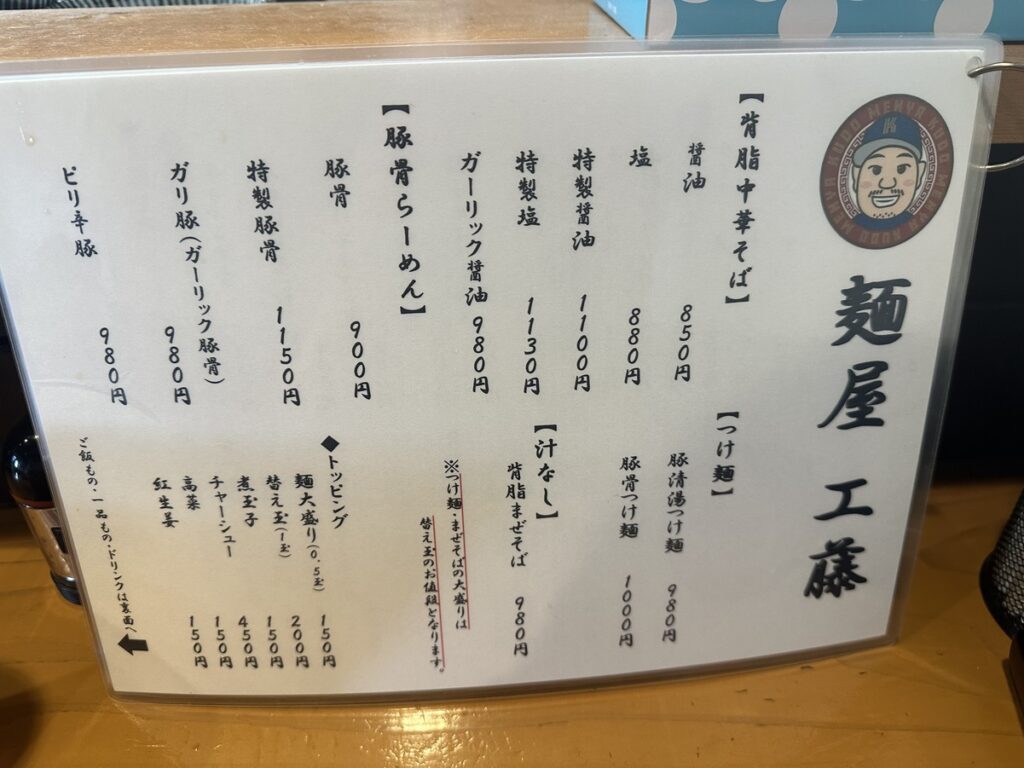 MENYA KUDO MENYA KUDO MENYA KUDO
麺屋 工藤
【背脂中華そば】
醤油 850円
塩 880円
特製醤油 1100円
特製塩 1130円
ガーリック醤油 980円
【豚骨らーめん】
豚骨 900円
特製豚骨 1150円
ガリ豚(ガーリック豚骨) 980円
ピリ辛豚 980円
【つけ麺】
豚清湯つけ麺 980円
豚骨つけ麺 1000円
【汁なし】
背脂まぜそば 980円
※つけ麺・まぜそばの大盛りは
替え玉のお値段となります。
◆トッピング
麺大盛り(0.5玉) 150円
替え玉(1玉) 200円
煮玉子 150円
チャーシュー 450円
高菜 150円
紅生姜 150円
ご飯もの・一品もの・ドリンクは裏面へ